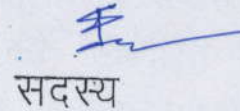 सदस्य